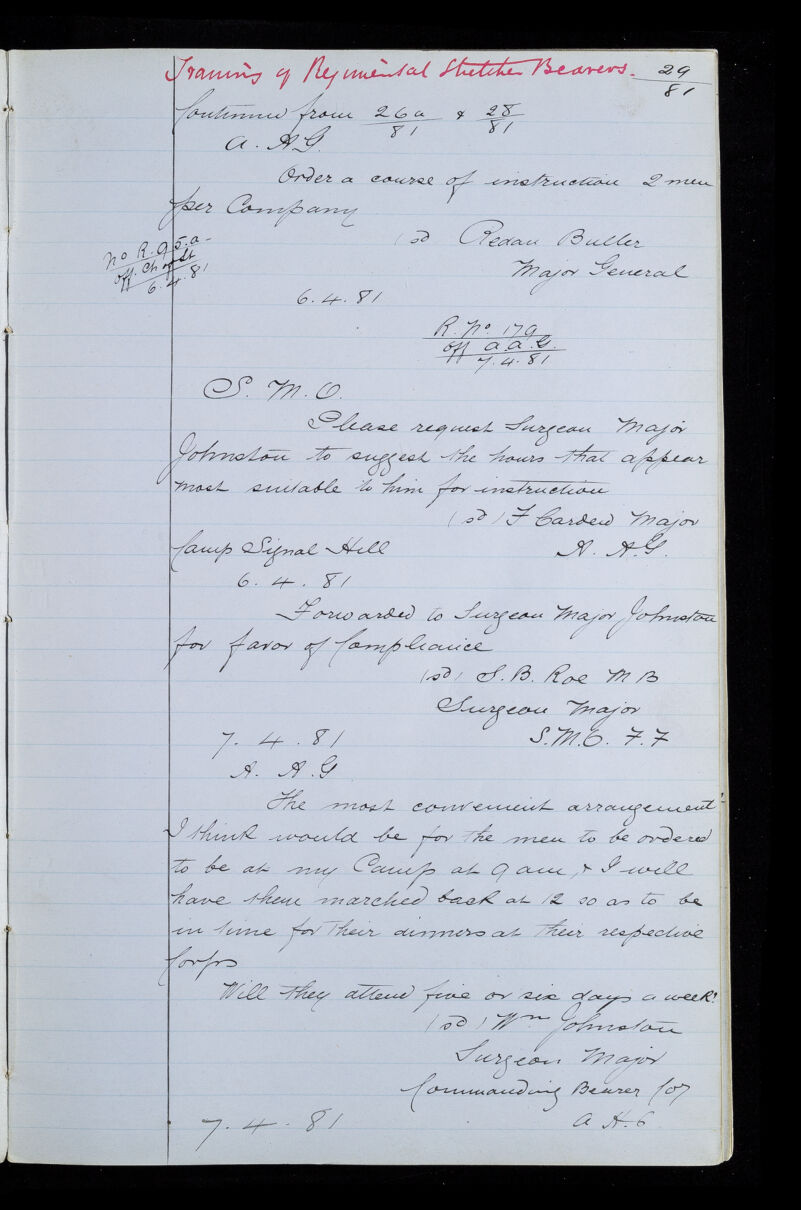 Training of Regimental Stretcher Bearers. 29/81
Continued from 26a/81 & 28/81
A. A.G.
Order a course of instruction 2 men
per Company
(sd) Redan Buller
Major General
No R. 95.a
Off. Ch of St
6.4.81
6.4.81
R. No. 179
Off A.A.G.
7.4.81
S. M. O.
Please request Surgeon Major
Johnston to suggest the hours that appear
most suitable to him for instruction
(sd) F Carden Major
A. A.G.
Camp Signal Hill
6. 4. 81
Forwarded to Surgeon Major Johnston
for favor of Compliance
(sd) S. B. Roe M B
Surgeon Major
S.M.O. F.F
7. 4. 81
A. A.G
The most convenient arrangement
I think would be for the men to be ordered
to be at my Camp at 9 am, & I will
have them marched back at 12 so as to be
in time for their dinners at their respective
Corps
Will they attend five or six days a week?
(sd) Wm Johnston
Surgeon Major
Commanding Bearer Coy
A H. C
7. 4. 81